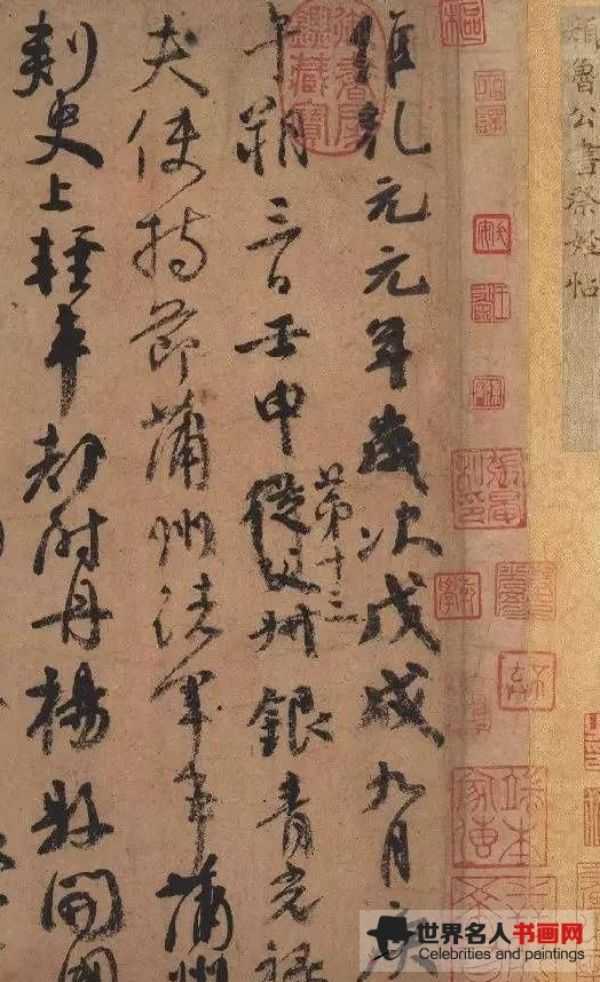 顏魯公書祭姪帖
維乾元元年歲次戊戌九月庚
午朔三日壬申從父叔銀青光祿
第十三
夫使持節蒲州諸軍事蒲州
刺史上輕車都尉丹楊縣開國
御書房鑑藏寶
世界名人书画网
Celebrities and paintings